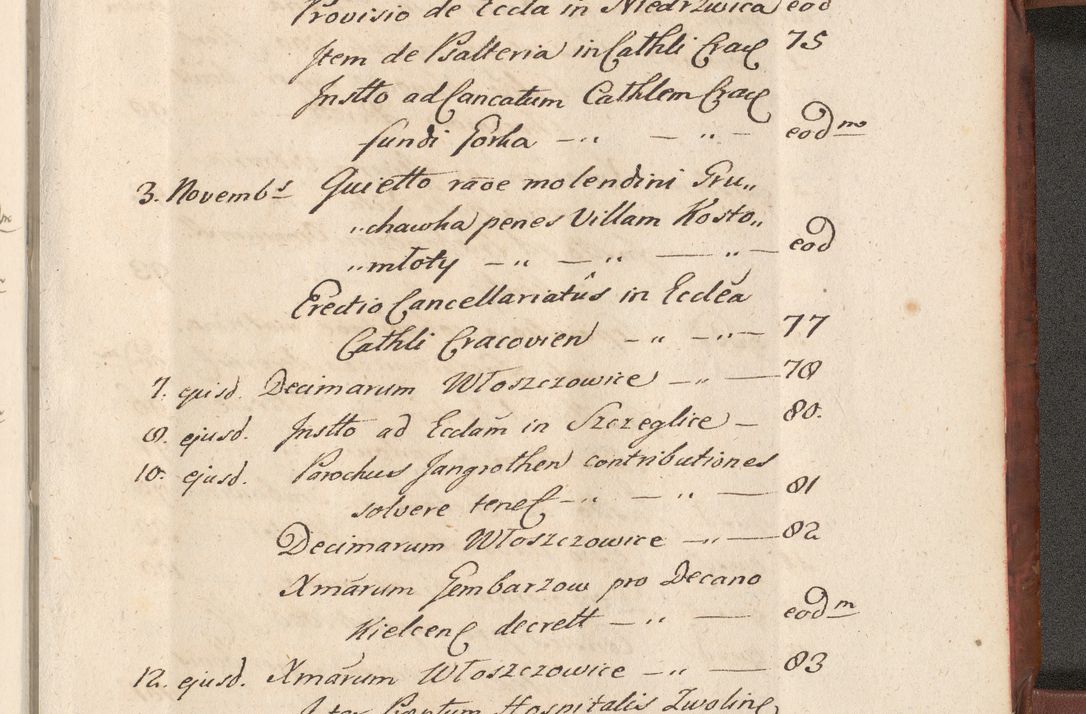 Provisio de Eccla in Niedrzwica eod
Item de Psalteria in Cathli Crac 75
Instto ad Cancatum Cathlem Crac
fundi Gorka — „ — „ — eod mo
3. Novemb s Quietto rãoe molendini Gru„
„chawka penes Villam Kosto„
„młoty — „ — „ — „ — eod
Erectio Cancellariatûs in Eccleã
Cathli Cracovien — „ — „ — 77
7. ejusd. Decimarum Włoszczowice — „ — 78
8. ejusd. Instto ad Ecclam̃ in Szczeglice — 80.
10. ejusd. Parochus Jangrothen contributiones
solvere tenet — „ — „ — 81
Decimarum Włoszczowice — „ — 82
Xmãrum Gembarzow pro Decano
Kielcen decrett — „ — eod m
12. ejusd. Xmãrum Włoszczowice — „ — 83
Hospitalis Zwolin